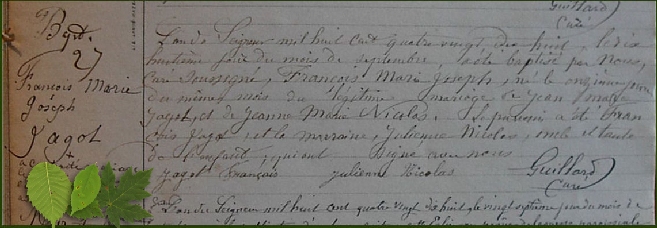 Guillard
Curé
Bapt.
27
François Marie
Joseph
Jagot
L'an du Seigneur mil huit cent quatre vingt dix huit, le dix
huitième jour du mois de septembre, a été baptisé par Nous,
Curé Soussigné, François Marie Joseph, né le onzième jour
du même mois du légitime mariage de Jean Marie
Jagot, et de Jeanne Marie Nicolas. Le parrain a été Fran
çois Jagot et la marraine, Julienne Nicolas, oncle et tante
de l'enfant, qui ont signé avec nous
Jagot François Julienne Nicolas Guillard
Curé
L'an du Seigneur mil huit cent quatre vingt dix huit le vingt septième jour du mois de